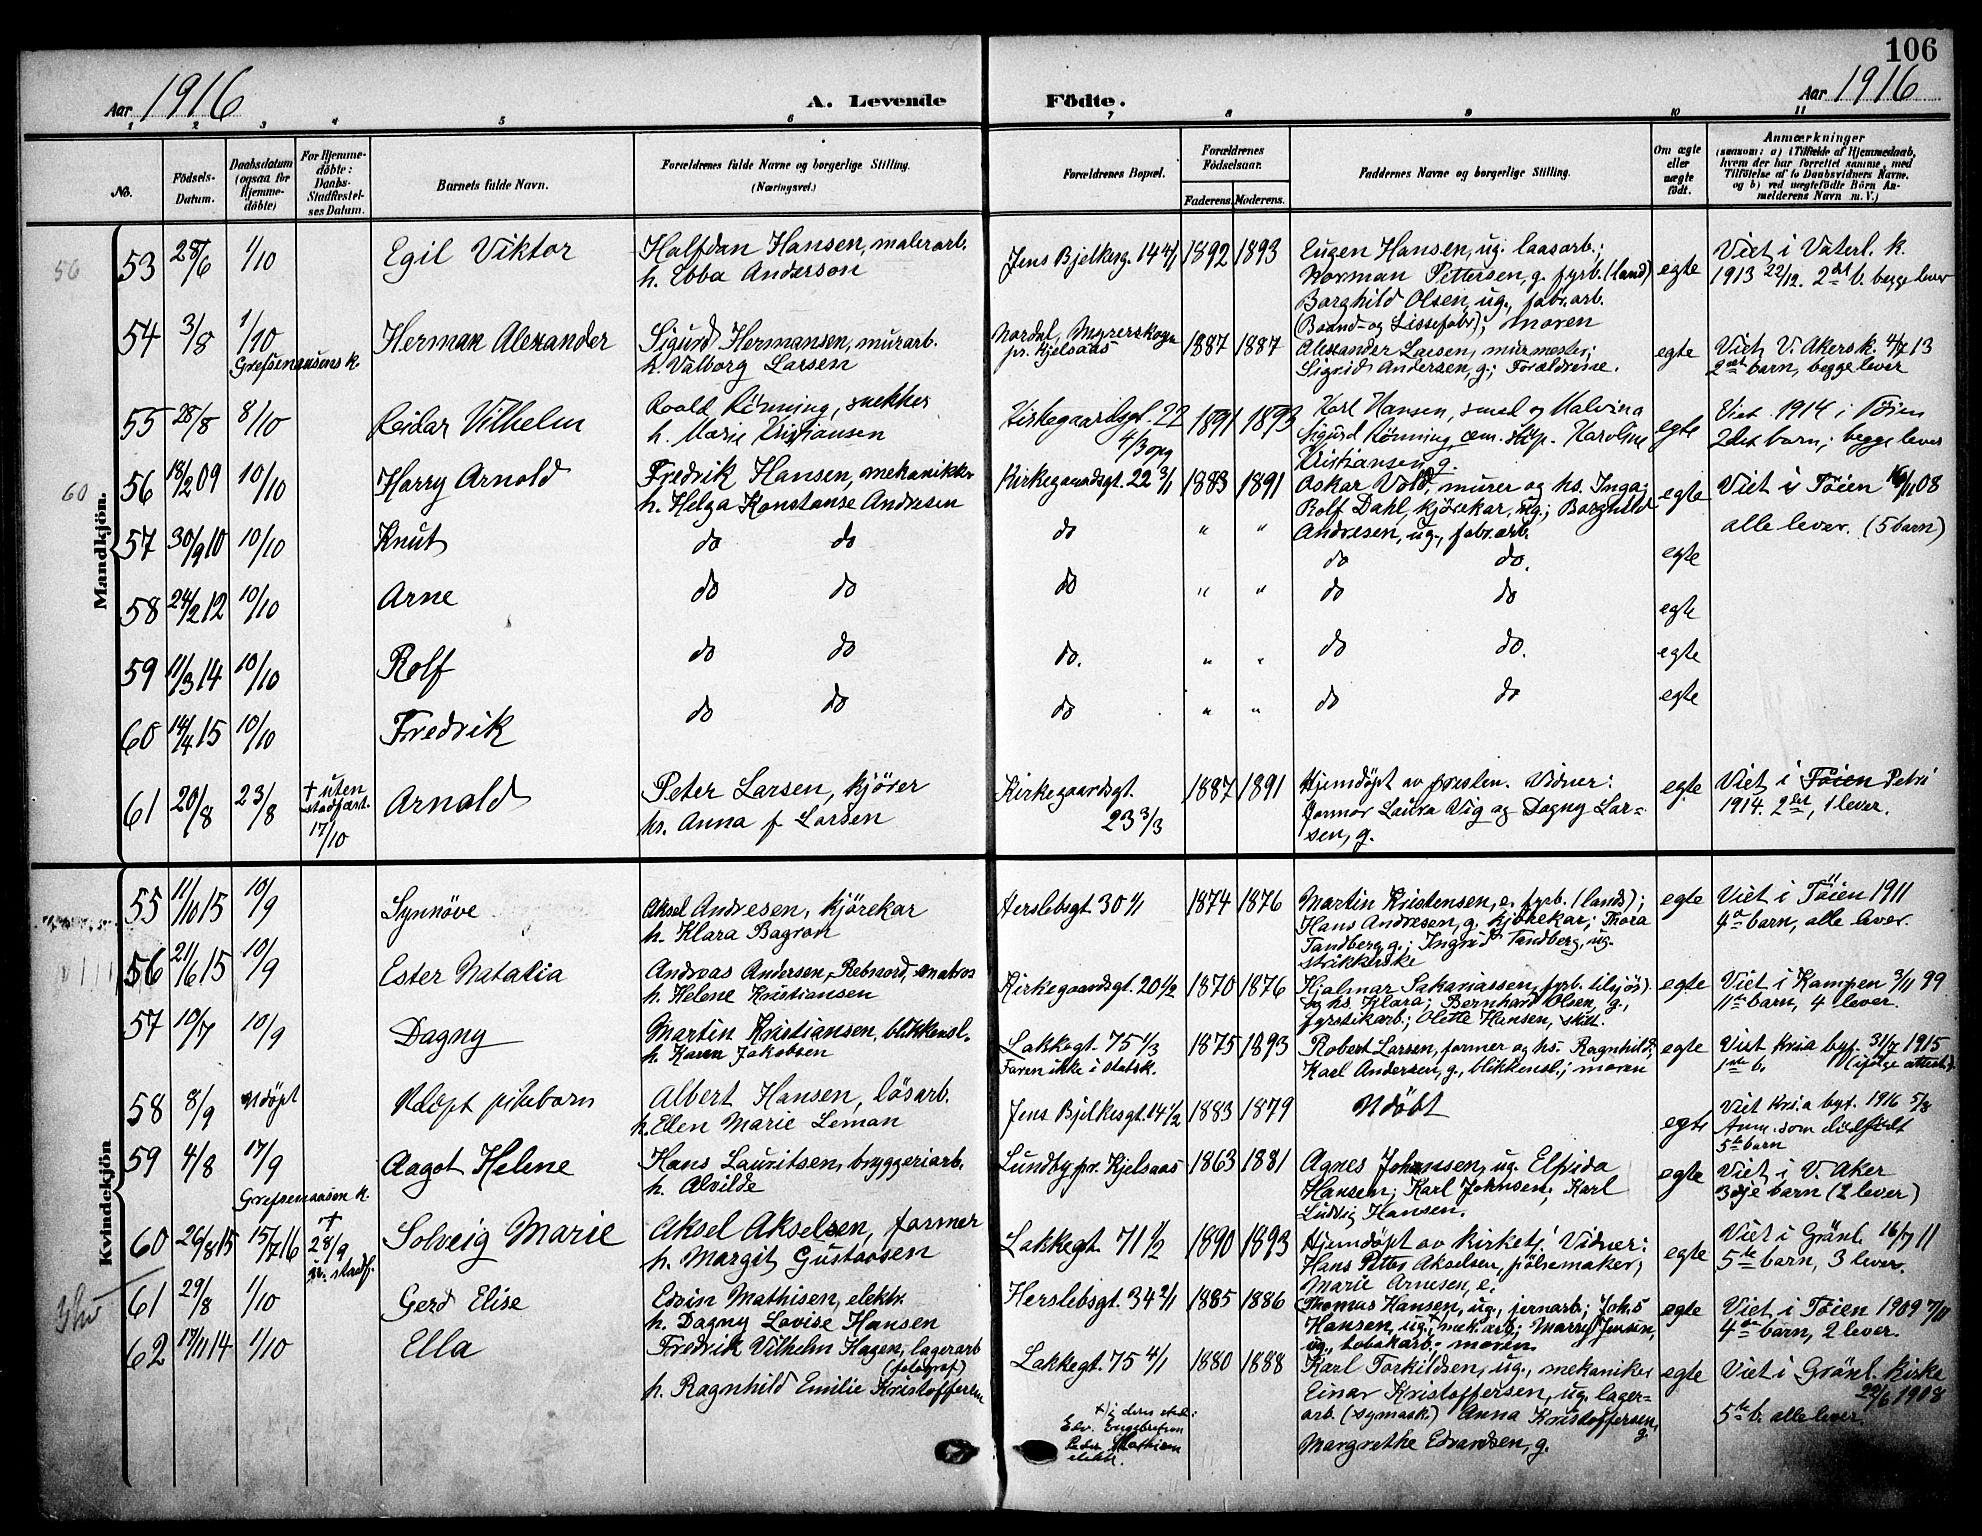 106
Aar 1916 A. Levende Födte. Aar 1916
1 2 3 4 5 6 7 8 9 10 11
No.
Födsels-Datum.
Daabsdatum (ogsaa for Hjemme-döbte)
For Hjemme-döbte: Daabs-Stadfæstel-ses Datum.
Barnets fulde Navn.
Forældrenes fulde Navne og borgerlige Stilling. (Næringsvei.)
Forældrenes Bopæl.
Forældrenes Födselsaar.
Faderens. Moderens.
Faddernes Navne og borgerlige Stilling.
Om ægte eller uægte födt.
Anmærkninger
(saasom: a) i Tilfælde af Hjemmedaab, hvem der har forrettet samme, med Tilföielse af to Daabsvidners Navne. og b) ved uægtefödte Börn An-melderens Navn m. V.)
Mandkjön.
56
53 28/6 1/10 Egil Viktor
Halfdan Hansen, malerarb.
h. Ebba Anderson
Jens Bjelkesg. 14 4/1 1892 1893
Eugen Hansen, ug. laasarb.;
Norman Pettersen, g. fyrb. (land)
Borghild Olsen, ug., fabr.arb.
(Baand- og Lissefabr); moren
egte
Viet i Vaterl. k.
1913 22/12. 2det b. begge lever
54 3/8 1/10 Herman Alexander
Grefsenaasens k.
Sigurd Hermansen, murarb.
h. Valborg Larsen
Nordal, Myrerskogen
pr. Kjelsaas 1887 1887
Alexander Larsen, murmester;
Sigrid Andersen, g.; Forældrene.
egte
Viet, V. Akers k. 4/7 13
2det barn, begge lever
55 28/8 8/10 Reidar Vilhelm
Roald Rönning, snekker
h. Marie Kristiansen
Kirkegaardsgt. 22
4/3 opg 1891 1893
Karl Hansen, smed og Malvina
Sigurd Rönning, Karoline
Kristiansen g.
egte
Viet 1914 i Töien
2det barn; begge lever
60
56 18/2 09 10/10 Harry Arnold
Fredrik Hansen, mekaniker
h. Helga Konstanse Andresen
Kirkegaardsgt. 22 3/1 1883 1891
Oskar Vold, murer og hs. Inga;
Rolf Dahl, kjörekar, ug.; Borghild
Andresen, ug., fabr.arb.
egte
Viet i Töien 16/11 08
alle lever. (5 barn)
57 30/9 10 10/10 Knut do do do " " do do. egte
58 24/2 12 10/10 Arne do do do " " do do egte
59 11/3 14 10/10 Rolf do do do. " " do do. egte
60 14/4 15 10/10 Fredrik do do do " " do do egte
61 20/8 23/8 † uten
stadfæst.
17/10
Arnold
Peter Larsen, kjörer
hs. Anna f Larsen
Kirkegaardsgt.
23 3/3 1887 1891
Hjemdöpt av presten. Vidner:
Jormor Laura Vig og Dagny Lar=
sen, g.
egte
Viet i Töien Petri
1914. 2det, 1 lever.
Kvindekjön
55 11/10 15 10/9 Synnöve
Aksel Andresen, kjörekar
h. Klara Bagron
Herslebsgt 30 4/1 1874 1876
Martin Kristensen, e. fyrb. (lands);
Hans Andresen, g. kjörekar; Thora
Tandberg, g.; Ingrid Tandberg, ug.
strikkerske
egte
Viet i Töien 1911
4de barn, alle lever.
56 21/6 15 10/9 Ester Natalia
Andreas Andersen, Rebnord, matros
h. Helene Kristiansen
Kirkegaardsgt. 20 1/2 1870 1876
Hjalmar Sakariassen, fyrb. tilsjös)
og hs. Klara; Bernhard Olsen, g.,
fyrstikarb.; Olette Hansen, skilt.
egte
Viet i Kampen 3/11 99
11te barn, 4 lever.
57 10/7 10/9 Dagny
Martin Kristiansen, blikkensl.
h. Karen Jakobsen
Lakkegt. 75 4/3
Faren ikke i statsk. 1875 1893
Robert Larsen, former og hs. Ragnhild;
Karl Andersen, g., blikkensl.; moren
egte
Viet Kria byf. 31/7 1915
1ste b. (ifölge attest).
58 8/9 Udöpt Udöpt pikebarn
Albert Hansen, lösarb.
h. Ellen Marie Leman
Jens Bjelkesgt. 14 1/2 1883 1879 Udöbt egte
Viet Kria byf. 1916 5/8
Anm. som dödfödt
5te barn
59 4/8 17/9 Aagot Helene
Grefsenaasen k.
Hans Lauritsen, bryggeriarb.
h. Alvilde
Lundby pr. Kjelsaas 1863 1881
Agnes Johansen, ug. Elfrida
Hansen; Karl Johnsen; Karl
Ludvig Hansen.
egte
Viet i V. Aker
3dje barn (2 lever)
60 26/8 15 15/7 16 †
28/9
Solveig Marie
Aksel Akselsen, former
h. Margit Gustavsen
Lakkegt. 71 4/2 1890 1893
Hjemdöpt av kirketj. Vidner:
Hans Petter Akselsen, pölsemaker;
Marie Arnesen, e.
egte
Viet i Grönl. 16/7 11
5te barn, 3 lever.
61 29/8 1/10 Gerd Elise
Edvin Mathisen, elektr.
h. Dagny Lovise Hansen
Herslebsgt. 34 2/1 1885 1886
Thomas Hansen, ug., jernarb.; Johs
Hansen, ug., mek.arb.; Marry Jensen,
ug., tobakarb.; moren
egte
Viet i Töien 1909 7/11
4de barn, 2 lever.
62 17/11 14 1/10 Ella
Fredrik Vilhelm Hagen, lagerarb
(fotograf)
h. Ragnhild Emilie Kristoffersen
Lakkegt. 75 4/1 1880 1888
Karl Torkildsen, ug., mekaniker
Einar Kristoffersen, ug. lager-
arb (symask) Anna Kristoffersen,
g.
Margrethe Edvardsen, g.
egte
Viet i Grönl. Kirke
22/6 1908
5te b. alle lever.
+) i deres sted:
Edv. Engebretsen
Peder Mathisen
elektr.